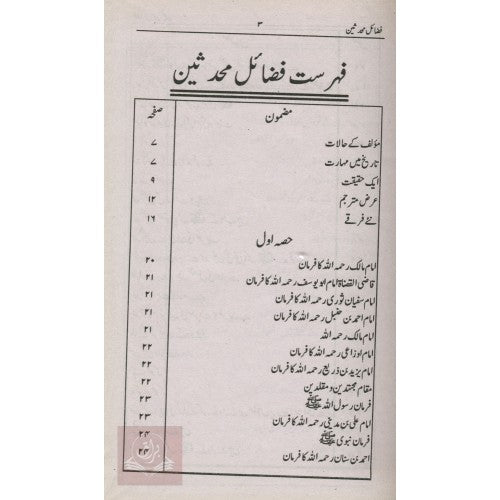 فضائل محدثین ۳
فہرست فضائل محدثین
مضمون صفحہ
مؤلف کے حالات ۷
تاریخ میں مہارت ۷
ایک حقیقت ۹
عرض مترجم ۱۲
نئے فرقے ۱۶
حصہ اول
امام مالک رحمہ اللہ کا فرمان ۲۰
قاضی القضاۃ امام ابو یوسف رحمہ اللہ کا فرمان ۲۱
امام سفیان ثوری رحمہ اللہ کا فرمان ۲۱
امام احمد بن حنبل رحمہ اللہ کا فرمان ۲۱
امام مالک رحمہ اللہ ۲۱
امام اوزاعی رحمہ اللہ کا فرمان ۲۲
امام یزید بن ذریع رحمہ اللہ کا فرمان ۲۲
مقام مجتہدین و مقلدین ۲۲
فرمان رسول اللہ ﷺ ۲۳
امام علی بن مدینی رحمہ اللہ کا فرمان ۲۳
فرمان نبوی ﷺ ۲۴
احمد بن سنان رحمہ اللہ کا فرمان ۲۴